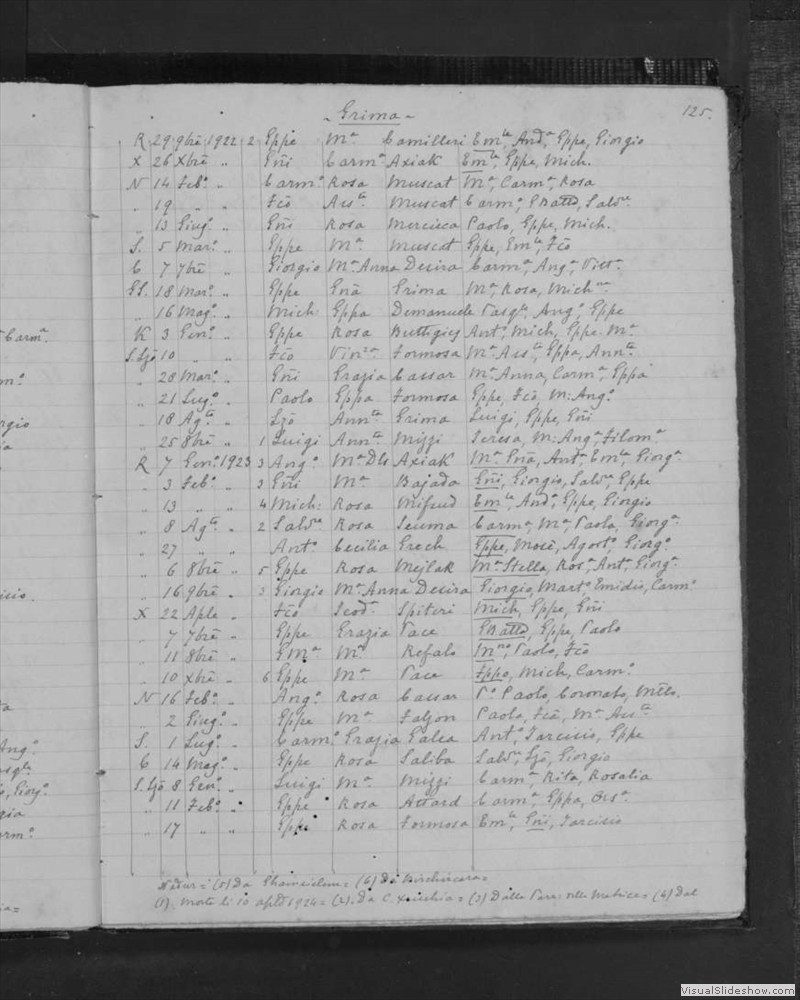 125.
- Grima -
R 29 9bre 1922 2 Eppe Ma Camilleri Emla, Anda, Eppe, Giorgio
X 26 Xbre " Gñi Carma Axiak Emla, Eppe, Mich.
N 14 Febo " Carmo Rosa Muscat Ma, Carma, Rosa
" 19 " " Fcõ Muscat Carmo, GBatta, Salvo
" 13 Giugo " Gñi Rosa Mercieca Paolo, Eppe, Mich.
S. 5 Maro " Eppe Ma Muscat Eppe, Emla, Fcõ
C 7 7bre " Giorgio Ma Anna Desira Carma, Anga, Vitta
GS. 18 Maro " Eppe Grima Ma, Rosa, Mich
" 16 Mago " Mich Eppa Demanuele Pasqle, Ango, Eppe
K 3 Geno " Eppe Rosa Buttigieg Anto, Mich, Eppe Ma
S. Ljõ 10 " " Fcõ Vinza Formosa Ma Eppa, Annta
" 28 Maro " Gñi Grazia Cassar Ma Anna, Carma, Eppa
" 21 Lugo " Paolo Eppa Formosa Eppe, Fcõ, M: Anga
" 18 Agto " Ljõ Annta Grima Luigi, Eppe, Gñi
" 25 8bre " 1 Luigi Annta Mizzi Teresa, M: Anga, Filoma
R 7 Geno 1923 3 Ango Ma Dls Axiak Ma Anta, Emla, Giorga
" 3 Febo " 3 Gñi Ma Bajada Gñi, Giorgio, Salvo, Eppe
" 13 " " 4 Mich: Rosa Mifsud Emla, Anda, Eppe, Giorgio
" 8 Agto " 2 Salvo Rosa Seuma Carma, Ma, Paola, Giorga
" 27 " " Anto Cecilia Grech Eppe, Mosè, Agosto, Giorgo
" 6 8bre " 5 Eppe Rosa Mejlak Ma Stella, Rosa, Anta, Giorga
" 16 9bre " 3 Giorgio Ma Anna Desira Giorgio, Marto, Emidio, Carmo
X 22 Aple " Fcõ Teoda Spiteri Mich, Eppe, Gñi
" 7 7bre " Eppe Grazia Pace GBatta, Eppe, Paolo
" 11 8bre " GMa Ma Refalo Paolo, Fcõ
" 10 Xbre " 6 Eppe Ma Pace Eppe, Mich, Carmo
N 16 Febo " Ango Rosa Cassar Po Paolo, Coronato,
" 2 Giugo " Eppe Ma Falzon Paolo, Fcã, Ma
S. 1 Lugo " Carmo Grazia Galea Anto, Tarcisio, Eppe
C 14 Mago " Eppe Rosa Saliba Salvo, Ljõ, Giorgio
S. Ljõ 8 Geno " Luigi Ma Mizzi Carma, Rita, Rosalia
" 11 Febo " Eppe Rosa Attard Carma, Eppa, Orsa
" 17 " " Eppe Rosa Formosa Emla, Gñi, Tarcisio
Nadur= (5) Da Ghainsielem= (6) Da Kirchircera=
(1). Morto li 10 aple 1924= (2). Da C. Xucchia= (3) Dalla Parr: della Matrice= (4) Dal
VisualSlideshow.com